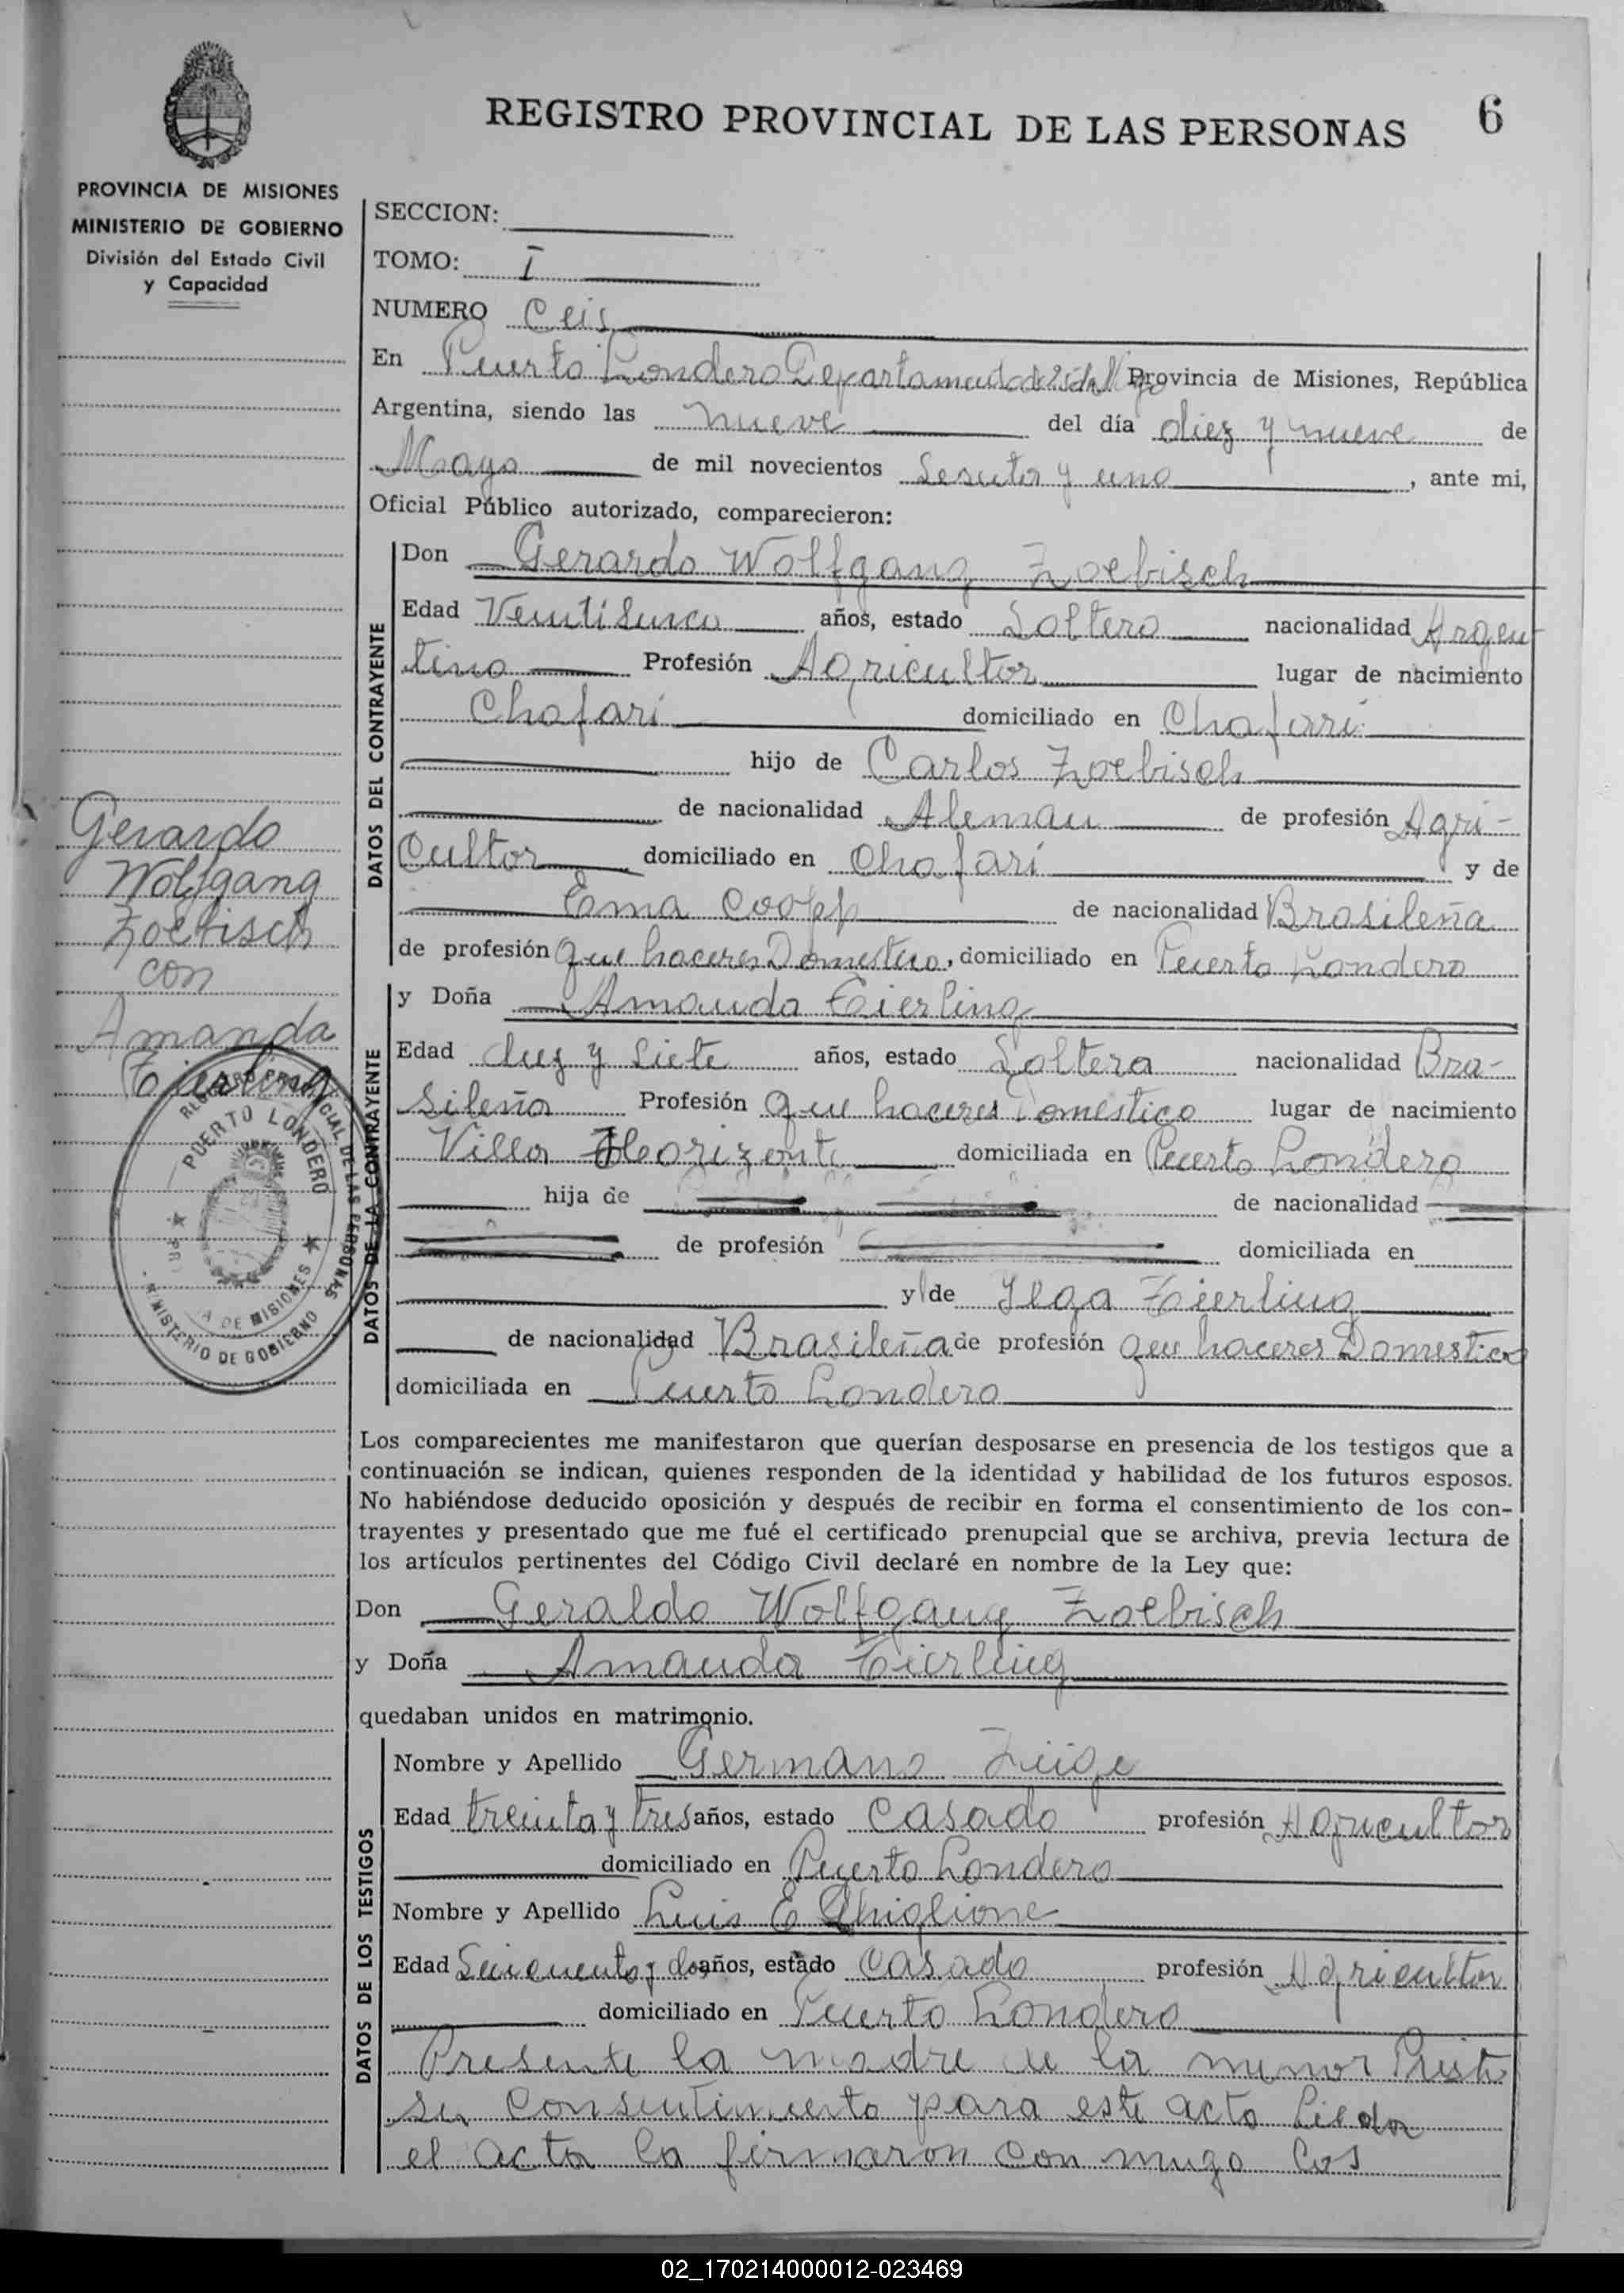 REGISTRO PROVINCIAL DE LAS PERSONAS
6
PROVINCIA DE MISIONES
MINISTERIO DE GOBIERNO
División del Estado Civil
y Capacidad
SECCION:
TOMO: I
NUMERO Ceis
En Puerto Londero Departamento Provincia de Misiones, República
Argentina, siendo las nueve del día diez y nueve de
Mayo de mil novecientos Sesenta y uno, ante mi,
Oficial Público autorizado, comparecieron:
DATOS DEL CONTRAYENTE
Don Gerardo Wolfgang Zoebisch
Edad años, estado Soltero nacionalidad Argen
tino Profesión Agricultor lugar de nacimiento
Chafari domiciliado en Chafarri
hijo de Carlos Zoebisch
de nacionalidad Aleman de profesión Agri-
Cultor domiciliado en Chafari y de
Ema Coopp de nacionalidad Brasileña
de profesión Que haceres Domestico, domiciliado en Puerto Londero
Gerardo
Wolfgang
Zoebisch
con
Amanda
DATOS DE LA CONTRAYENTE
y Doña Amanda Tierling
Edad diez y Siete años, estado Soltera nacionalidad Bra-
Sileña Profesión Que haceres Domestico lugar de nacimiento
Villa Horizonte domiciliada en Puerto Londero
hija de de nacionalidad
de profesión domiciliada en
y de Ilga Tierling
de nacionalidad Brasileña de profesión Que haceres Domestico
domiciliada en Puerto Londero
REGISTRO PROVINCIAL DE LAS PERSONAS
PUERTO LONDERO
MISIONES
MINISTERIO DE GOBIERNO
Los comparecientes me manifestaron que querían desposarse en presencia de los testigos que a
continuación se indican, quienes responden de la identidad y habilidad de los futuros esposos.
No habiéndose deducido oposición y después de recibir en forma el consentimiento de los con-
trayentes y presentado que me fué el certificado prenupcial que se archiva, previa lectura de
los artículos pertinentes del Código Civil declaré en nombre de la Ley que:
Don Geraldo Wolfgang Zoebisch
y Doña Amanda Tierling
quedaban unidos en matrimonio.
DATOS DE LOS TESTIGOS
Nombre y Apellido Germano
Edad treinta y tres años, estado Casado profesión Agricultor
domiciliado en Puerto Londero
Nombre y Apellido Luis E Ghiglione
Edad años, estado Casado profesión Agricultor
domiciliado en Puerto Londero
Presente la madre de la menor
su Consentimiento para este acto Lieda
el acta la firmaron con migo Los
02_170214000012-023469